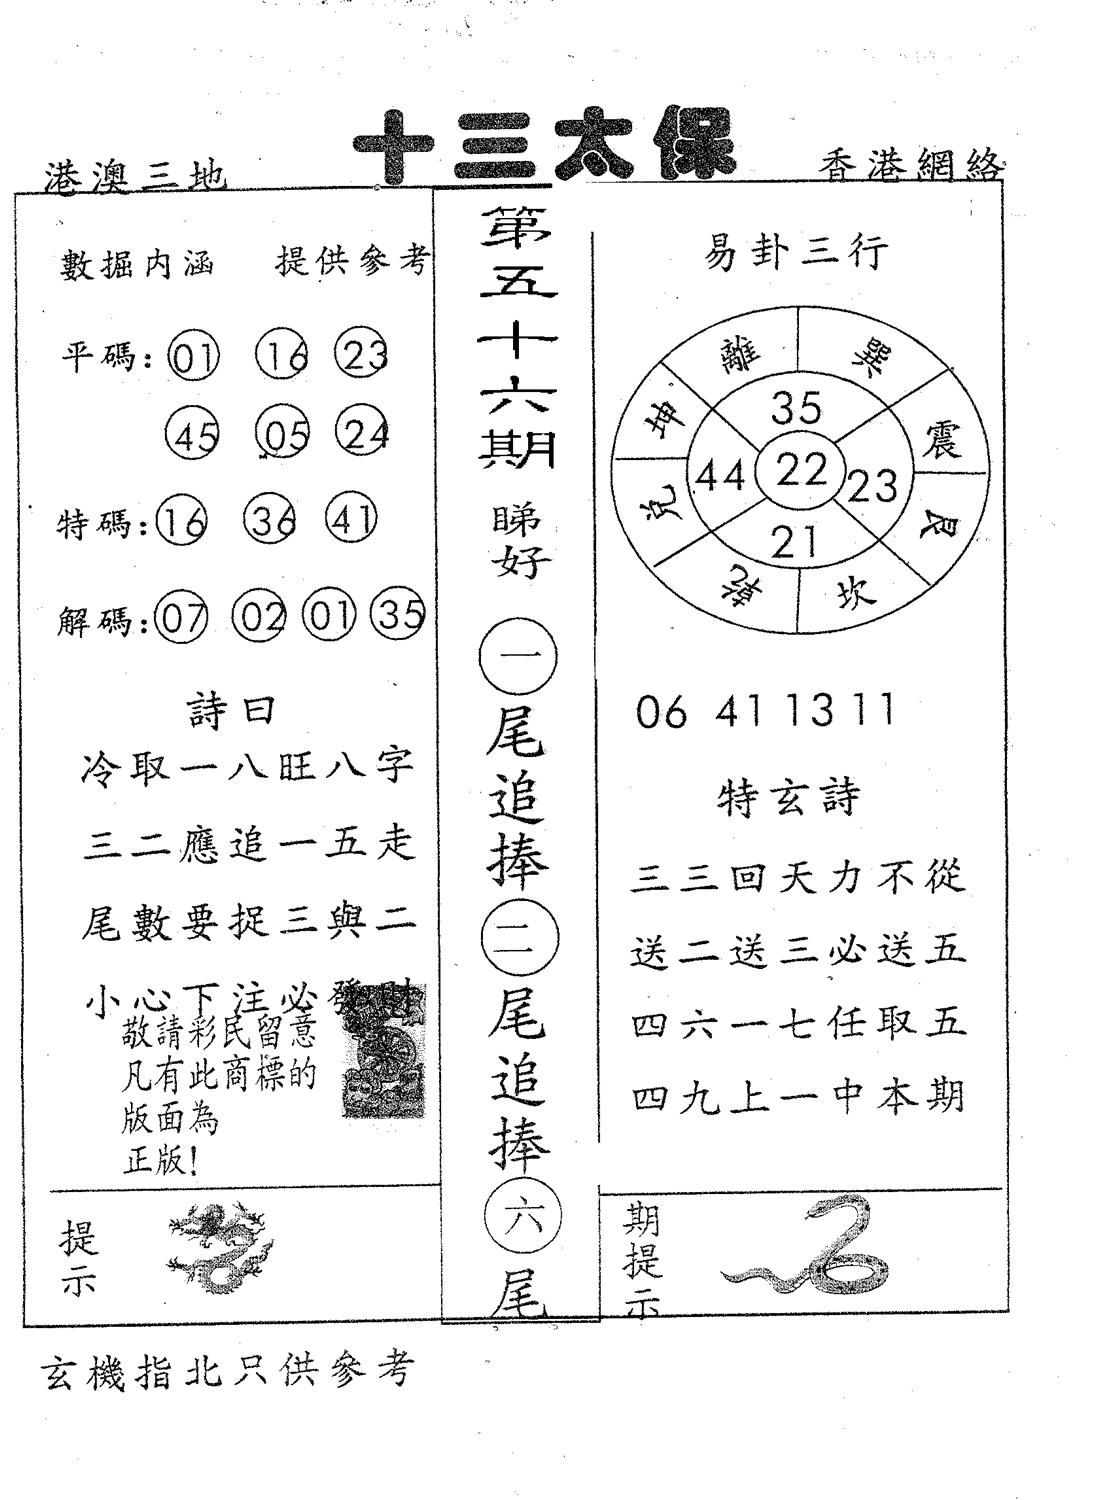 十三太保
港澳三地
香港網絡
數掘内涵 提供參考
平碼: 01 16 23
45 05 24
特碼: 16 36 41
解碼: 07 02 01 35
詩曰
冷取一八旺八字
三二應追一五走
尾數要捉三與二
小心下注必發財
敬請彩民留意
凡有此商標的
版面為
正版!
提示
第五十六期
睇好
一尾追捧二尾追捧六尾
易卦三行
離 巽
坤 震
兌 艮
乾 坎
35
44 22 23
21
06 41 13 11
特玄詩
三三回天力不從
送二送三必送五
四六一七任取五
四九上一中本期
期提示
玄機指北只供參考